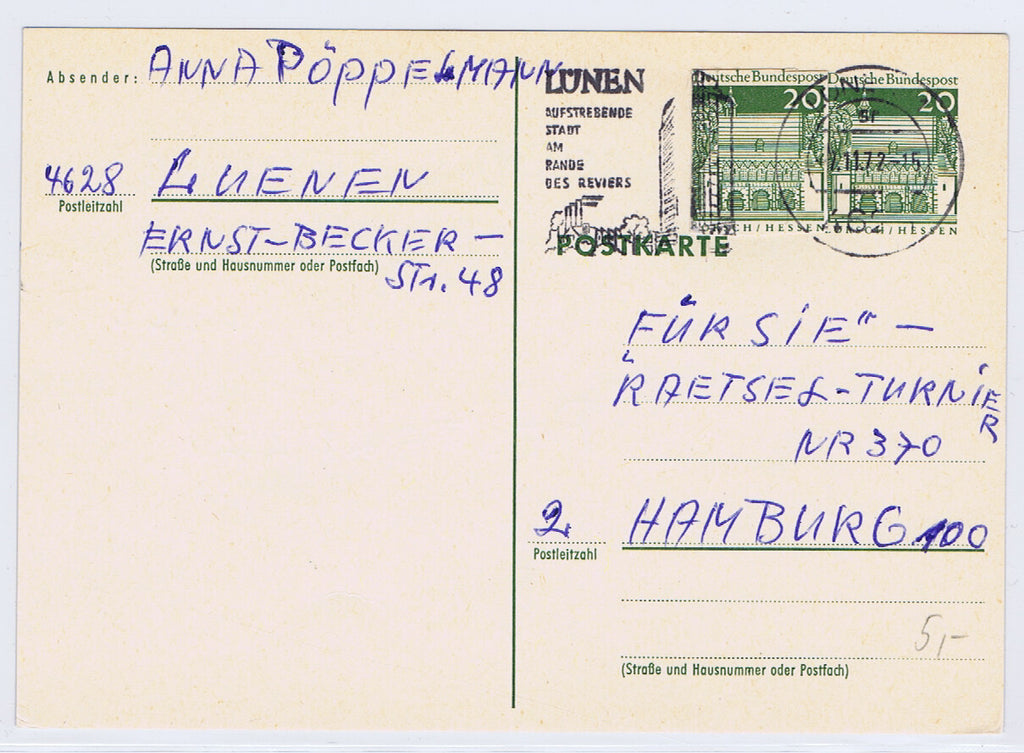 Absender: ANNA PÖPPELMANN
4628 LUENEN
Postleitzahl
ERNST-BECKER-
(Straße und Hausnummer oder Postfach)
STR. 48
LÜNEN
AUFSTREBENDE
STADT
AM
RANDE
DES REVIERS
Deutsche Bundespost Deutsche Bundespost
20 20
LORSCH/HESSEN LORSCH/HESSEN
POSTKARTE
„FÜR SIE" –
RAETSEL-TURNIER
NR 370
2 HAMBURG 100
Postleitzahl
5,-
(Straße und Hausnummer oder Postfach)